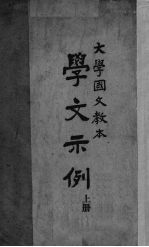 大學國文教本
學文示例
上册